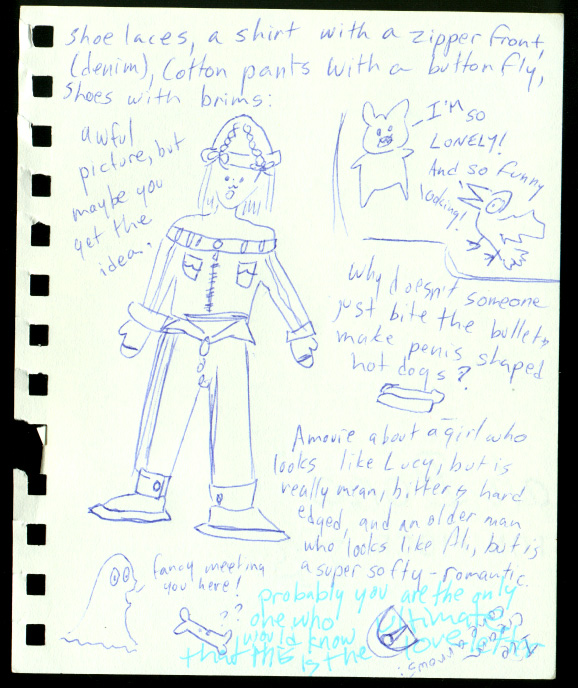 shoe laces, a shirt with a zipper front,
(denim), Cotton pants with a button fly,
Shoes with brims:
awful
picture, but
maybe you
get the
idea.
I'M so
LONELY!
And so funny
looking!
why doesn't someone
just bite the bullet &
make penis shaped
hot dogs?
A movie about a girl who
looks like Lucy, but is
really mean, bitter & hard
edged, and an older man
who looks like Al, but is
a super softy-romantic.
fancy meeting
you here!
??
probably you are the only
one who
would know ultimate
that this is the love letter
Ice
cream
cone